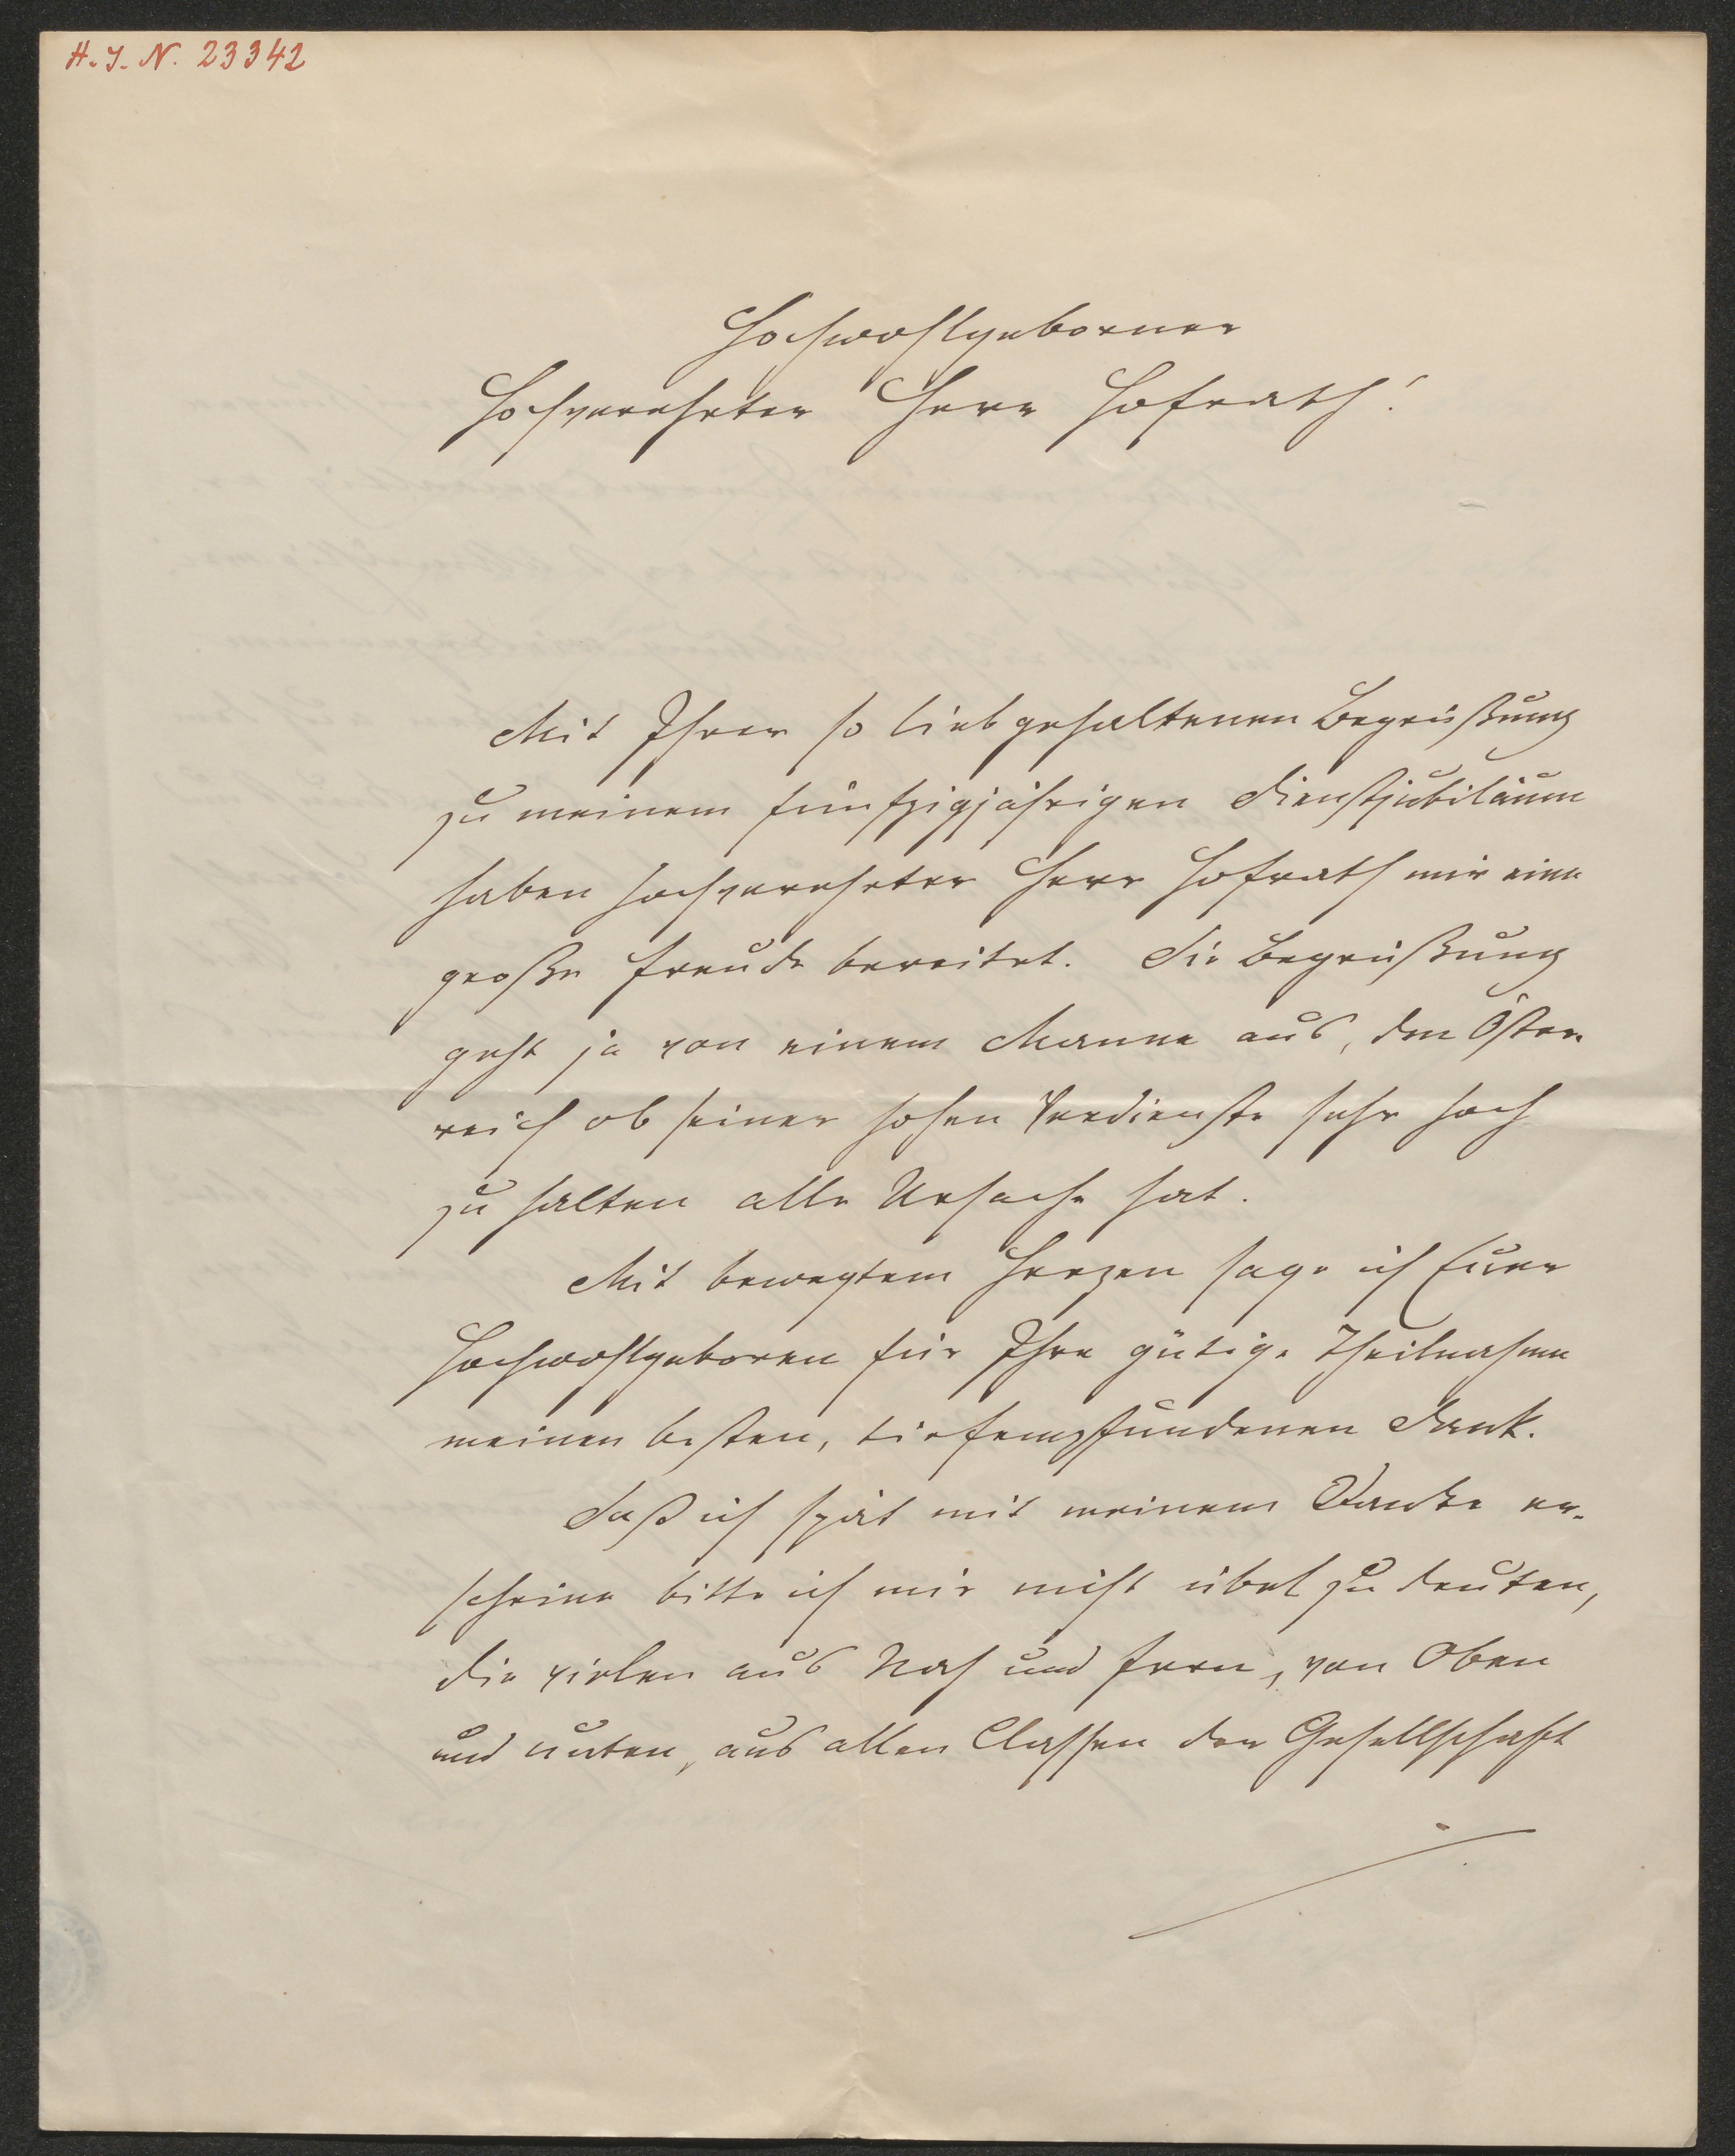 H. I. N. 23342
Hochwohlgeborner
Hochverehrter Herr Hofrath!
Mit Ihrer so liebgehaltenen Begrüßung
zu meinem fünfzigjährigen Dienstjubiläum
haben hochverehrter Herr Hofrath mir eine
große Freude bereitet. Die Begrüßung
geht ja von einem Manne aus, den Öster-
reich ob seiner hohen Verdienste sehr hoch
zu halten alle Ursache hat.
Mit bewegtem Herzen sage ich Euer
Hochwohlgeboren für Ihre gütige Theilnahme
meinen besten, tiefempfundenen Dank.
Daß ich spät mit meinem Danke er-
scheine bitte ich mir nicht übel zu deuten,
die vielen aus Nah und Fern, von Oben
und unten, aus allen Classen der Gesellschaft